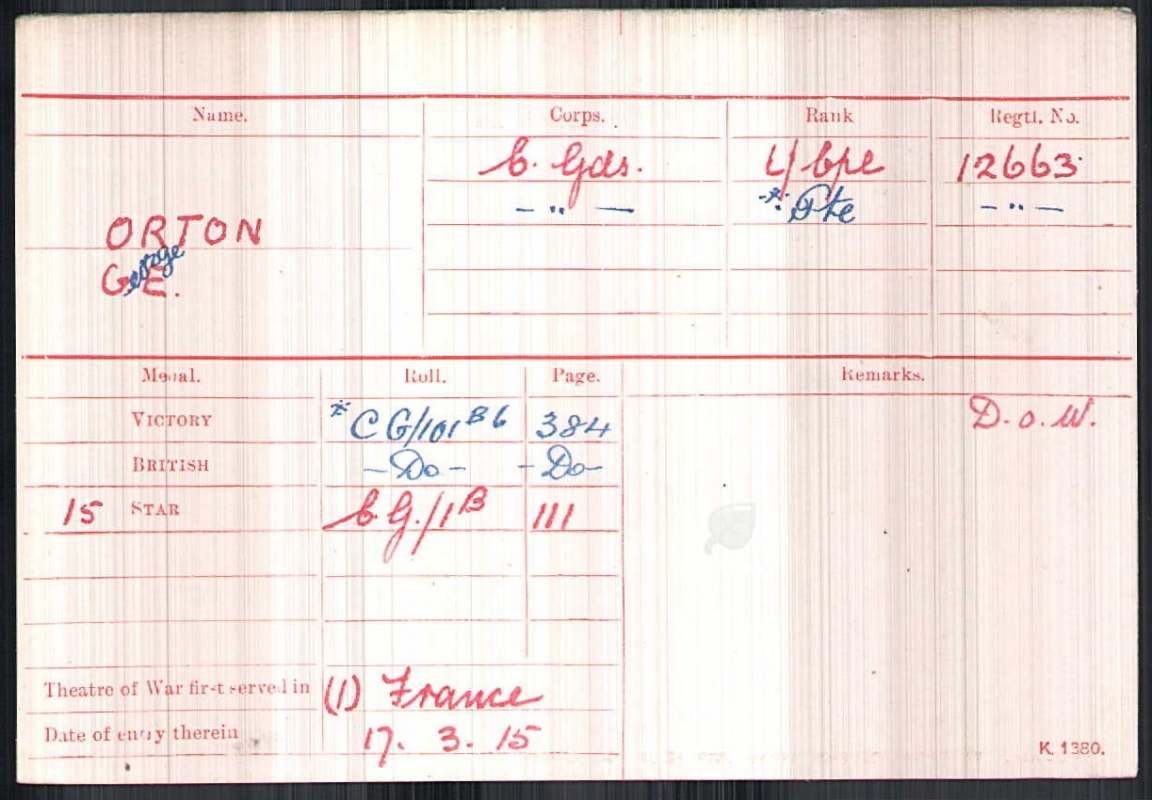 Name. Corps. Rank Regtl. No.
C. Gds. L/Cpl 12663
— " — * Pte — " —
ORTON
George E.
Medal. Roll. Page. Remarks.
VICTORY * CG/101 B6 384 D.o.W.
BRITISH - Do - - Do -
15 STAR C.G./1B 111
Theatre of War first served in (1) France
Date of entry therein 17. 3. 15
K. 1380.